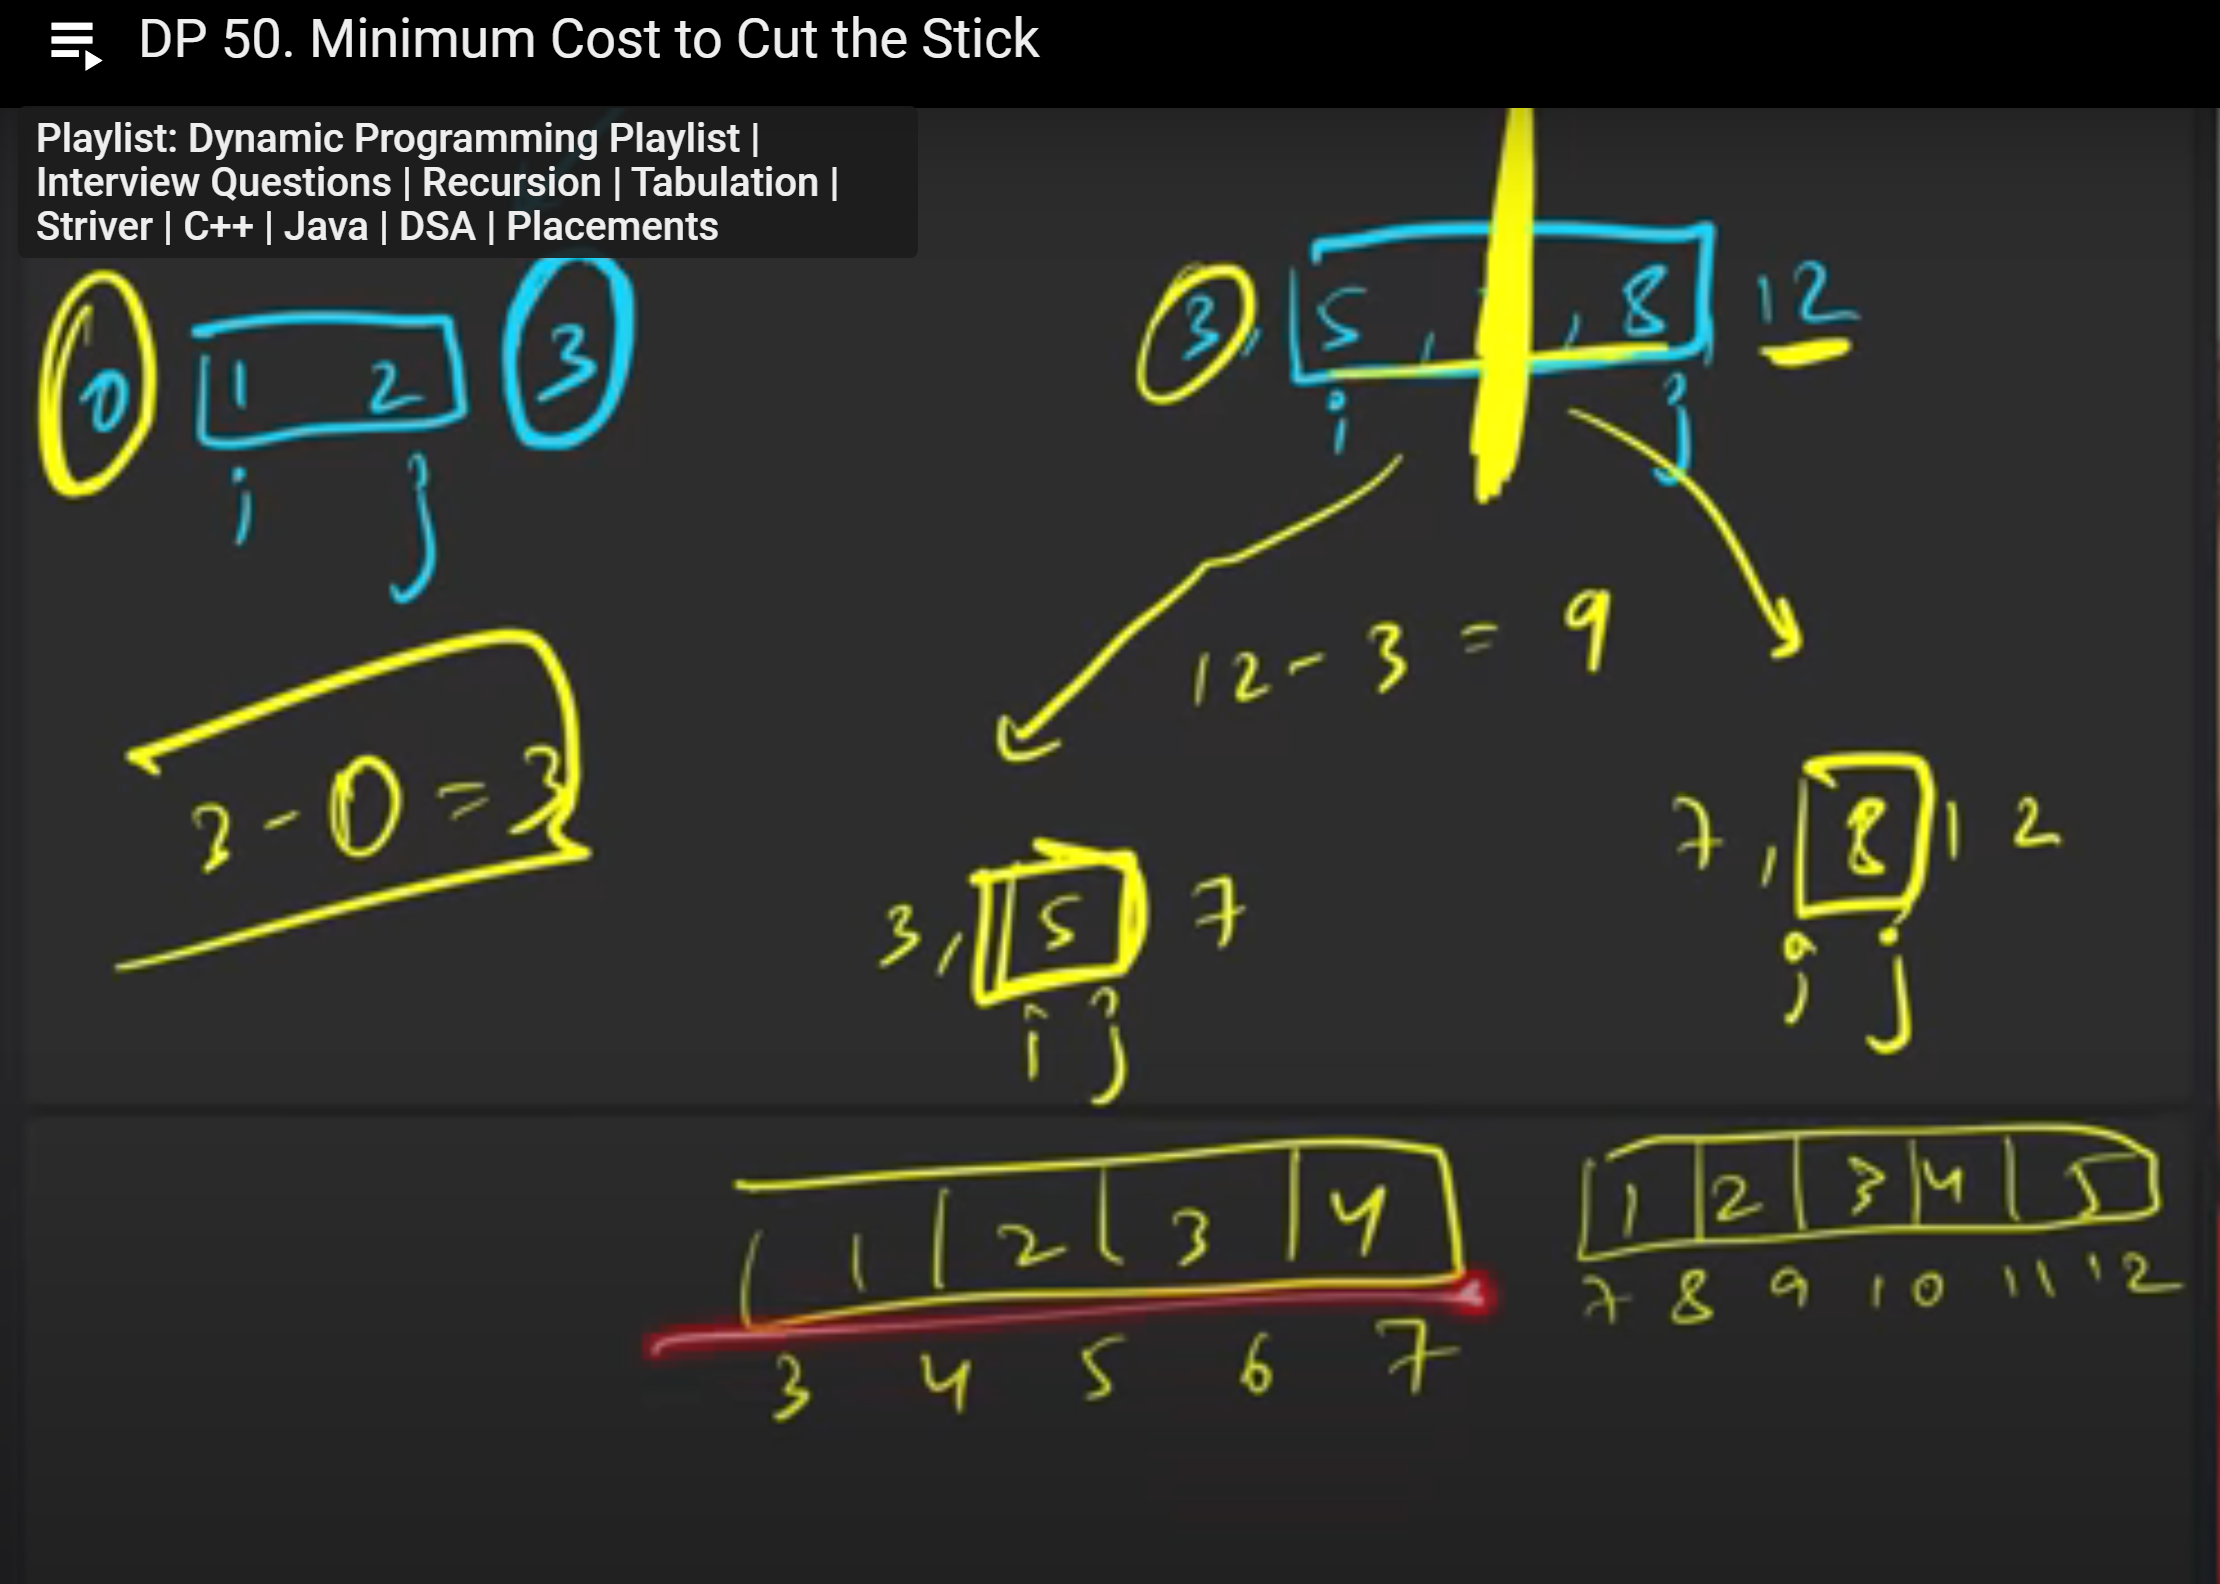 DP 50. Minimum Cost to Cut the Stick
Playlist: Dynamic Programming Playlist |
Interview Questions | Recursion | Tabulation |
Striver | C++ | Java | DSA | Placements
0 1 2 3
i j
3 - 0 = 3
3, 5, , 8 12
i j
12 - 3 = 9
3, 5 7
i j
7, 8 12
i j
1 2 3 4
3 4 5 6 7
1 2 3 4 5
7 8 9 10 11 12